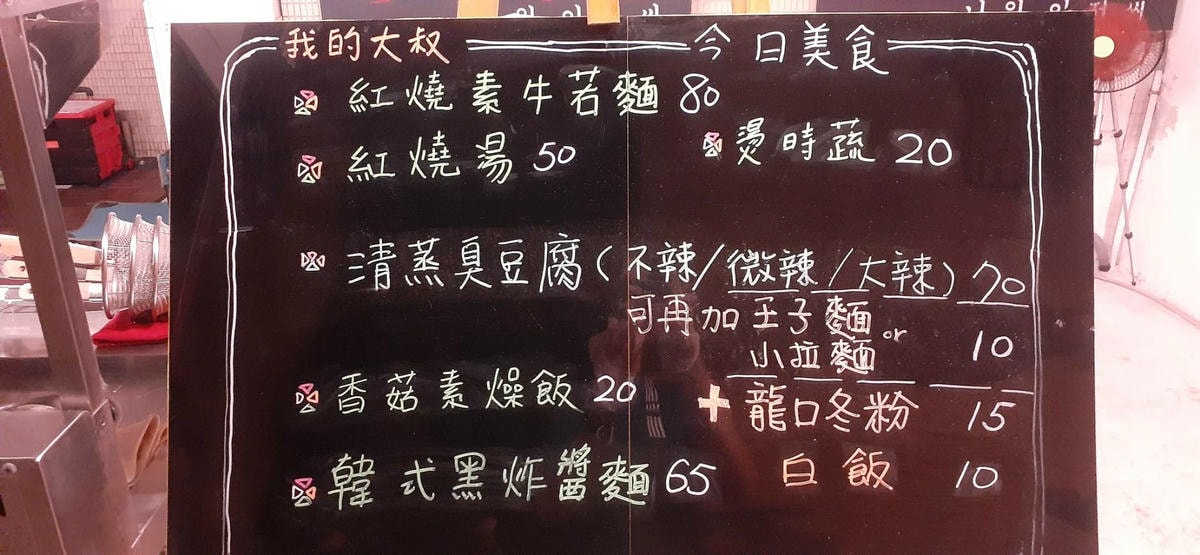 我的大叔 今日美食
紅燒素牛若麵 80
紅燒湯 50
燙時蔬 20
清蒸臭豆腐(不辣/微辣/大辣) 70
可再加 王子麵 or
小拉麵 10
香菇素燥飯 20
+龍口冬粉 15
韓式黑炸醬麵 65
白飯 10